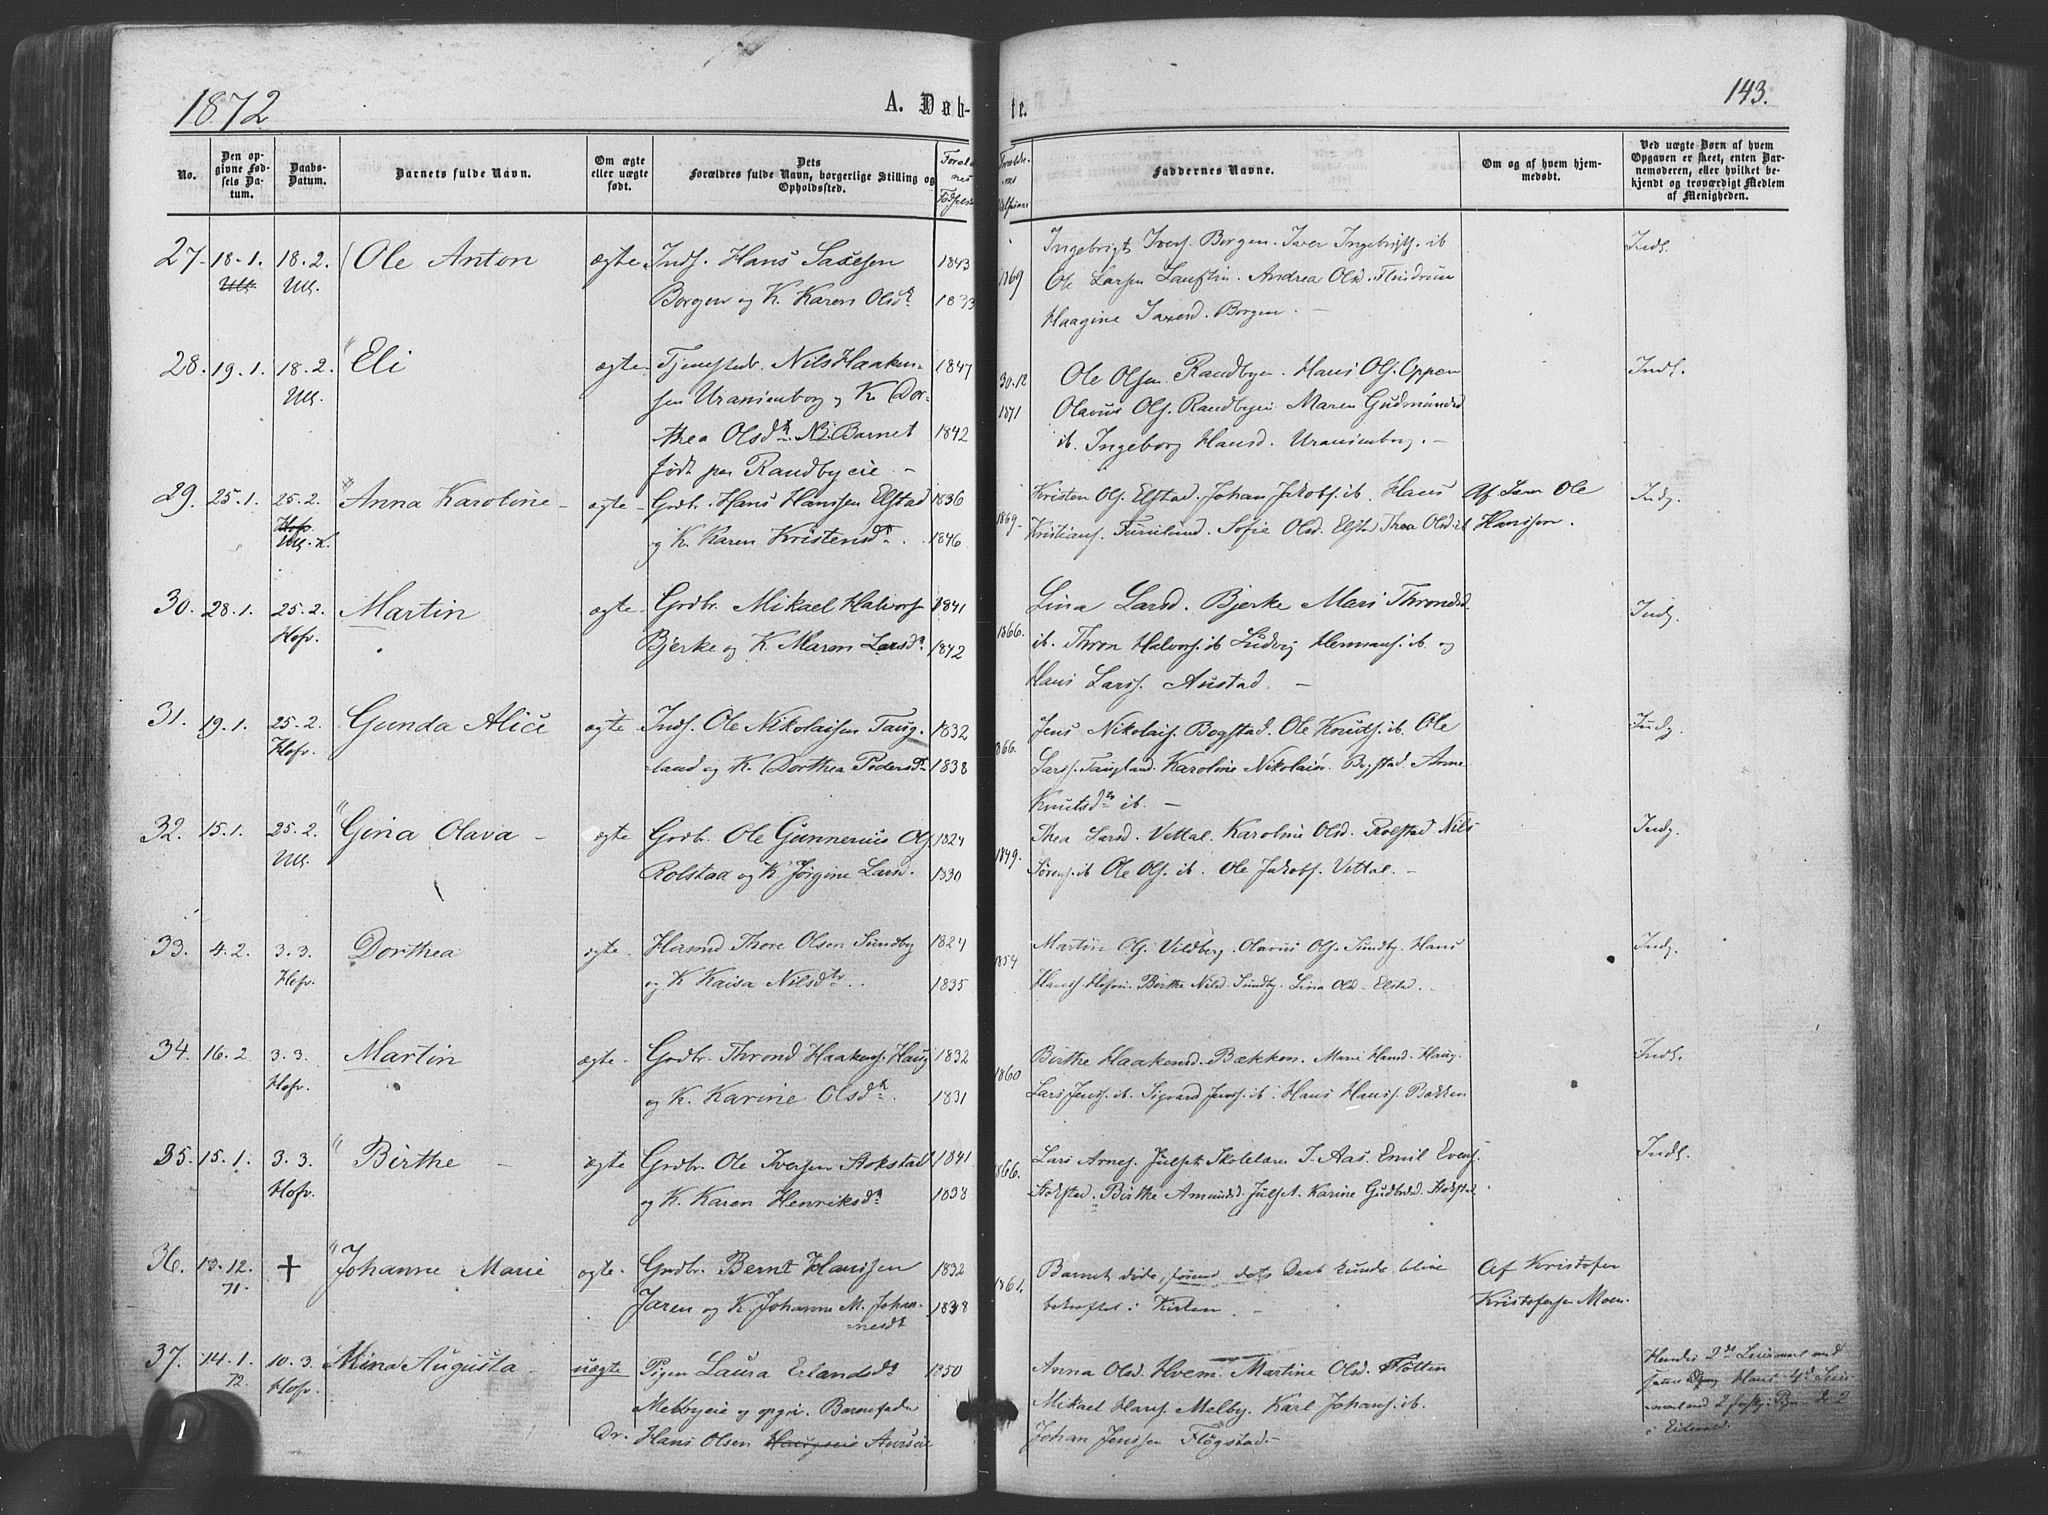 1872
A. Døb-
te.
143.
No.
Den op-
givne Fød-
sels Da-
tum.
Daabs-
Datum.
Barnets fulde Navn.
Om ægte
eller uægte
født.
Dets
Forældres fulde Navn, borgerlige Stilling og
Opholdssted.
Faddernes Navne.
Om og af hvem hjem-
medøbt.
Ved uægte Børn af hvem
Opgaven er skeet, enten Bar-
nemoderen, eller hvilket be-
kjendt og troværdigt Medlem
af Menigheden.
27. 18.1. 18.2. Ole Anton ægte Inds. Hans Saxesen 1843
Ull. Ull. Borgen og K. Karen Olsd. 1833
1869 Ingebrigt Ivers. Borgen. Iver Ingebrigts. ib
Ole Larsen. Andrea Olsd. Flindrum
Haagine Saxesd. Borgen. Inds.
28. 19.1. 18.2. Eli ægte Tjenestedr. Nils Haaken- 1847
Ull. sen Uranienborg og K. Dor-
thea Olsdtr. NB Barnet 1842
født paa Randbyeie
30.12 Ole Olsen Randbyei. Hans Ols. Oppen Inds.
1871 Olavus Ols. Randbyeie Maren Gudmundsd
ib. Ingeborg Hansd. Uranienborg.
29. 25.1. 25.2. Anna Karoline ægte Grdbr. Hans Hanssen Elstad 1836
Hofv. Ull. K. og K. Karen Kristensdtr. 1846
1869. Kristen Ols. Elstad. Johan Jakobs. ib. Hans Af Ole
Kristians. Furulund. Sofie Olsd. Elstad Thea Olsd. ib Hanssen. Inds.
30. 28.1. 25.2. Martin ægte Grdbr. Mikael Halvors. 1841
Hofv. Bjerke og K. Maren Larsd. 1842
1866. Lina Larsd. Bjerke Mari Thronds.
ib. Thron Halvors. ib Ludvig Hermans. ib. og
Hans Larss. Austad. Inds.
31. 19.1. 25.2. Gunda Alice ægte Inds. Ole Nikolaisen Taug- 1832
Hofv. land og K. Dorthea Pedersdtr. 1838
1866. Jens Nikolais. Bogstad. Ole Knuts. ib. Ole
Larss. Taugland. Karoline Nikolais. Bogstad. Anne
Knutsdtr. ib. Inds.
32. 15.1. 25.2. Gina Olava ægte Grdbr. Ole Gunnerius Ols. 1824
Ull. Rolstad og K. Jørgine Larsd. 1830
1849. Thea Larsd. Vettal. Karoline Olsd. Rolstad Nils
Sørens. ib Ole Ols. ib. Ole Jakobs. Vettal. Inds.
33. 4.2. 3.3. Dorthea ægte Husmd Thore Olsen Sundby 1824
Hofv. og K Kaisa Nilsdtr. 1835
1854 Martin Ols. Vildberg. Olavus Ols. Sundby. Hans
Hanss. Hofvn. Birthe Nilsd. Sundby. Lina Olsd. Elstad. Inds.
34. 16.2. 3.3. Martin ægte Grdbr. Thrond Haakens. Haug 1832
Hofv. og K. Karine Olsdtr. 1831
1860 Birthe Haakensd. Bækken. Mari Hansd. Haug.
Lars Jenss. ib. Sigvard Jenss. ib. Hans Hanss. Bækken Inds.
35. 15.1. 3.3. Birthe ægte Grdbr. Ole Iversen Stokstad 1841
Hofv. og K. Karen Henriksdtr. 1838
1866. Lars Arnes. Julset. Skolelærer J. Aas. Emil Evens.
Stokstad. Birthe Amundsd. Julset. Karine Gudbrdsd. Stokstad. Inds.
36. 13.12. 71. + Johanne Marie ægte Grdbr. Bernt Hanssen 1832
Jaren og K. Johanne M. Johan- 1838
nesdtr
1861. Barnet døde, førend dets Daab kunde blive Af Kristofer
bekræftet i Kirken. Kristofersen Moen.
37. 14.1. 72. 10.3. Mina Augusta uægte Pigen Laura Erlandsdtr 1850
Hofv. Melbyeie og opgiv. Barnefader
Dr. Hans Olsen Haugseie Aurseie
Anna Olsd. Hvem. Martine Olsd. Tøtten
Mikael Hans. Melby. Karl Johans. ib.
Johan Jenssen Fløgstad.
Hendes 2det Leiermaal med
Hans 4de Leier-
maal
i Eidsvold.